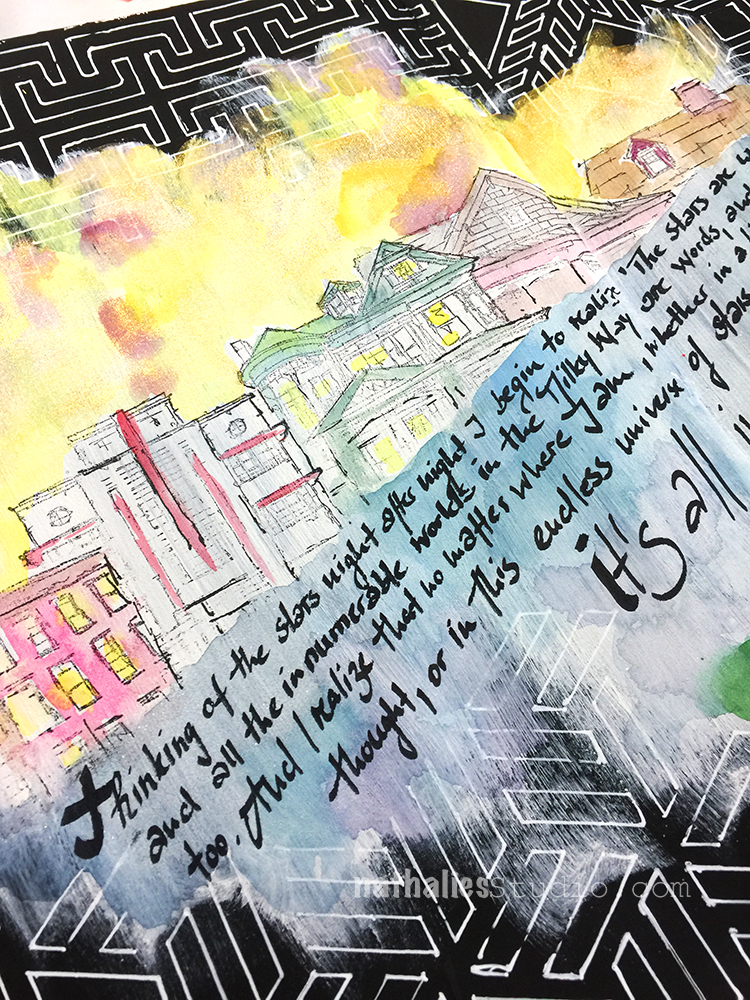 Thinking of the stars night after night I begin to realize 'The stars are w
and all the innumerable worlds in the Milky Way are words, and
too. And I realize that no matter where I am, whether in a l
thought, or in this endless universe of stars
it's all i
nathaliesstudio.com